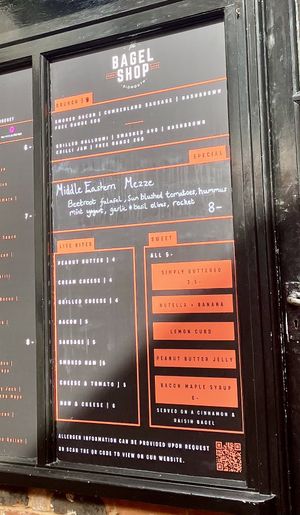 The
BAGEL
SHOP
BRUNCH | 9
SMOKED BACON | CUMBERLAND SAUSAGE | HASHBROWN
FREE RANGE EGG
GRILLED HALLOUMI | SMASHED AVO | HASHBROWN
CHILLI JAM | FREE RANGE EGG
SPECIAL
Middle Eastern Mezze
Beetroot falafel, Sun blushed tomatoes, hummus
mint yogurt, garlic & basil olives, rocket
8-
LITE BITES
PEANUT BUTTER | 4
CREAM CHEESE | 4
GRILLED CHEESE | 4
BACON | 5
SAUSAGE | 5
SMOKED HAM | 6
CHEESE & TOMATO | 5
HAM & CHEESE | 6
SWEET
ALL 5-
SIMPLY BUTTERED
3.-
NUTELLA + BANANA
LEMON CURD
PEANUT BUTTER JELLY
BACON MAPLE SYRUP
6-
SERVED ON A CINNAMON &
RAISIN BAGEL
ALLERGEN INFORMATION CAN BE PROVIDED UPON REQUEST
OR SCAN THE QR CODE TO VIEW ON OUR WEBSITE.